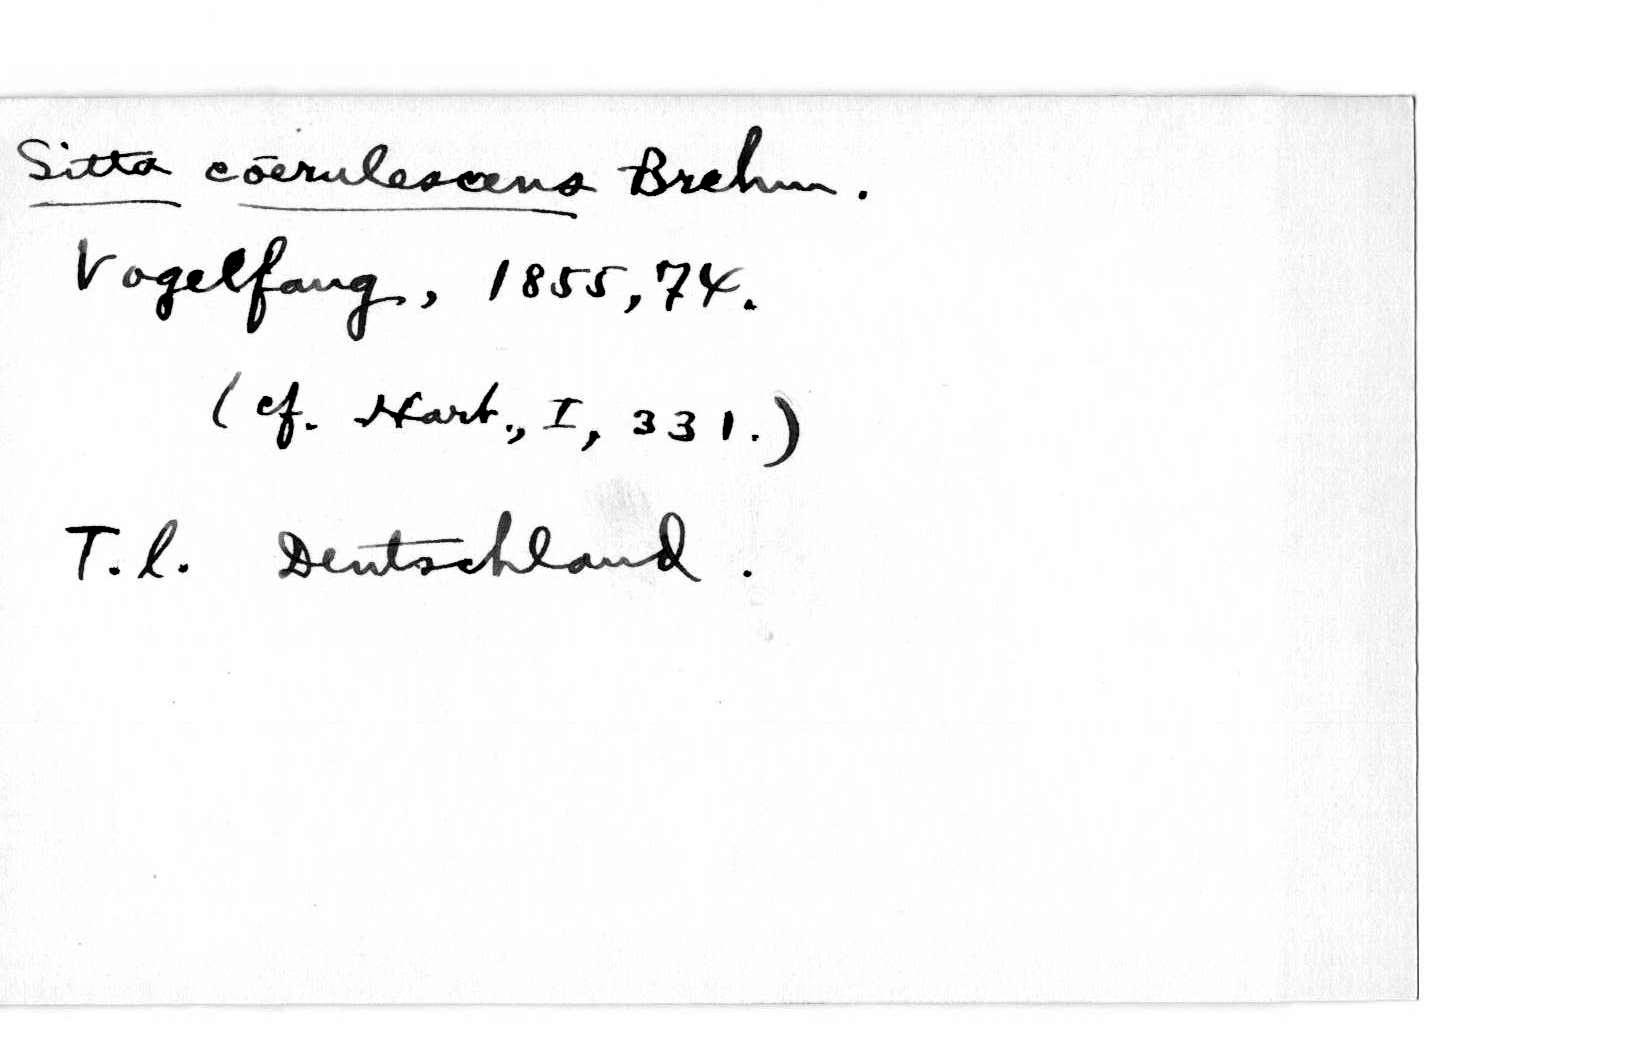 Sitta cöerulescens Brehm.
Vogelfang, 1855, 74.
(cf. Hart., I, 331.)
T. l. Deutschland.